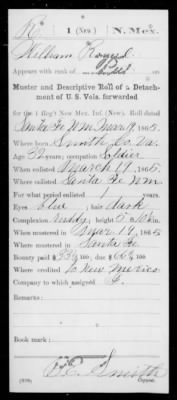 R | 1 (New) | N. Mex.
William
Appears with rank of
Muster and Descriptive Roll of a Detach-
ment of U. S. Vols. forwarded
for the 1 Reg't New Mex. Inf. (New). Roll dated
Santa Fe N.M. Mar 19, 1865.
Where born Smith Co. Va.
Age y'rs; occupation Soldier
When enlisted March 19, 1865.
Where enlisted Santa Fe N.M.
For what period enlisted 1 years.
Eyes blue; hair dark
Complexion ruddy; height 5 ft. in.
When mustered in Mar 19, 1865
Where mustered in Santa Fe
Bounty paid $; due $
Where credited to New Mexico
Company to which assigned
Remarks:
Book mark:
Smith
Copyist.